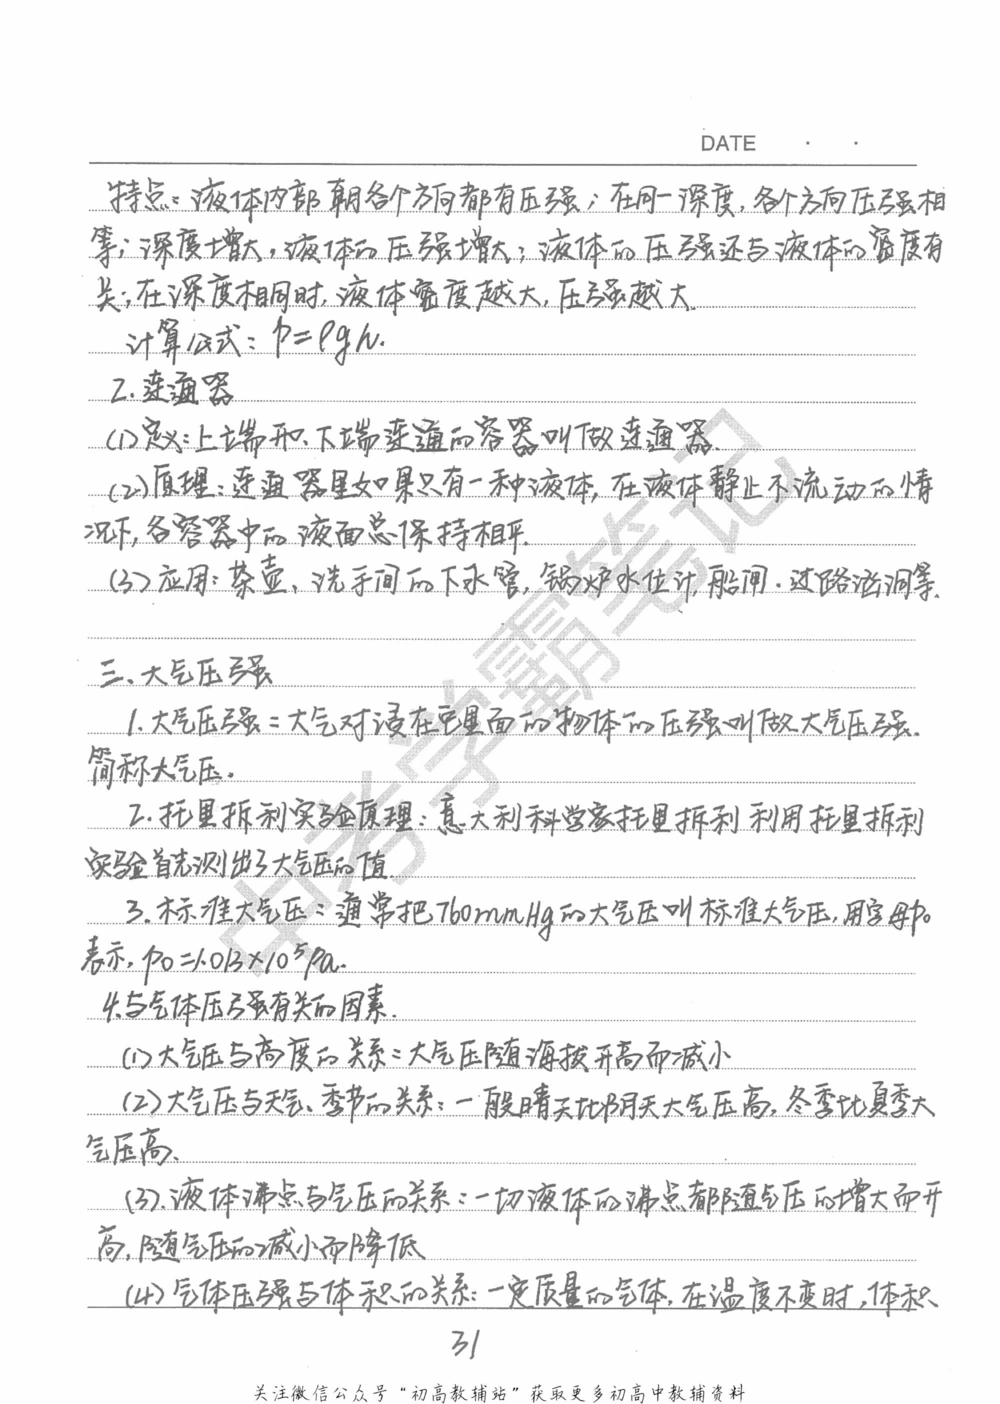 DATE · ·
特点:液体内部朝各个方向都有压强;在同一深度,各个方向压强相
等;深度增大,液体的压强增大;液体的压强还与液体的密度有
关;在深度相同时,液体密度越大,压强越大.
计算公式:p=ρgh.
2.连通器
(1)定义:上端开、下端连通的容器叫做连通器.
(2)原理:连通器里如果只有一种液体,在液体静止不流动的情
况下,各容器中的液面总保持相平.
(3)应用:茶壶、洗手间的下水管,锅炉水位计,船闸.过路涵洞等.
三、大气压强
1.大气压强:大气对浸在它里面的物体的压强叫做大气压强.
简称大气压。
2.托里拆利实验原理:意大利科学家托里拆利利用托里拆利
实验首先测出了大气压的值.
3.标准大气压:通常把760mmHg的大气压叫标准大气压,用字母p0
表示,p0=1.013×10⁵Pa.
4.与气体压强有关的因素.
(1)大气压与高度的关系:大气压随海拔升高而减小
(2)大气压与天气、季节的关系:一般晴天比阴天大气压高,冬季比夏季大
气压高.
(3).液体沸点与气压的关系:一切液体的沸点都随气压的增大而升
高,随气压的减小而降低
(4)气体压强与体积的关系:一定质量的气体,在温度不变时,体积
31
关注微信公众号“初高教辅站”获取更多初高中教辅资料
中考学霸笔记